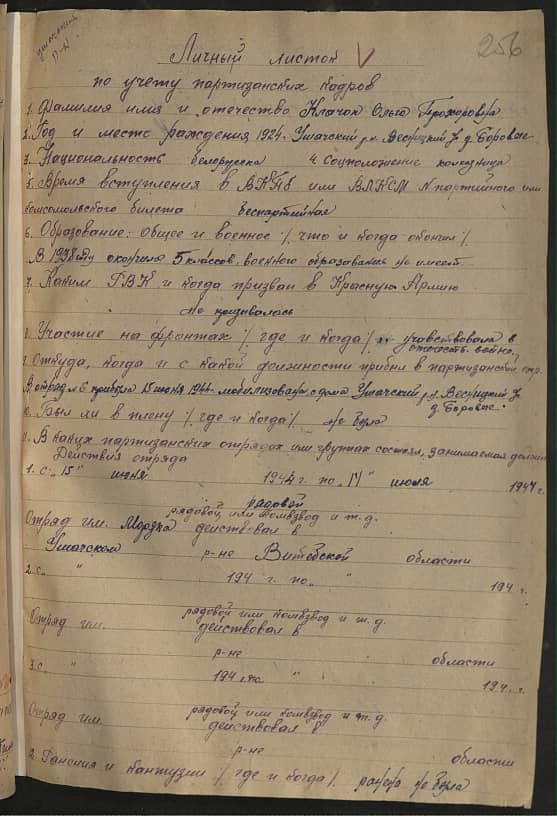 256
Личный листок V
по учету партизанских кадров
1. Фамилия имя и отечество Клачок Ольга Прохоровна
2. Год и место рождения 1924. Ушачский р-н. д. Боровые.
3. Национальность белорусска 4. Соцположение колхозница
5. Время вступления в ВКПб или ВЛКСМ N партийного или
комсомольского билета беспартийная
6. Образование: общее и военное /, что и когда окончил /,
В 1938 году окончила 5 классов. военного образования не имеет.
7. Каким РВК и когда призван в Красную Армию
не призывалась
8. Участие на фронтах /, где и когда /, участвовала в
отечеств. войне.
9. Откуда, когда и с какой должности прибыл в партизанский отр.
В отряд прибыла 15 июня 1944. мобилизована с дома Ушачский р-н.
д. Боровые.
10. Был ли в плену /, где и когда /, не была
11. В каких партизанских отрядах или группах состоял, занимаемая должн.
Действия отряда
1. с "15" июня 1944 г. по "17" июля 1944 г.
рядовой
рядовой или комвзвод и т.д.
Отряд им. действовал в
Ушачском р-не Витебской области
2. с " 194 г. по " " 194 г.
рядовой или комвзвод и т.д.
Отряд им. действовал в
р-не области
3. с " 194 по " 194 г.
рядовой или комвзвод и т.д.
Отряд им. действовал в
р-не области
2. Ранения и контузии /, где и когда /, ранена не была